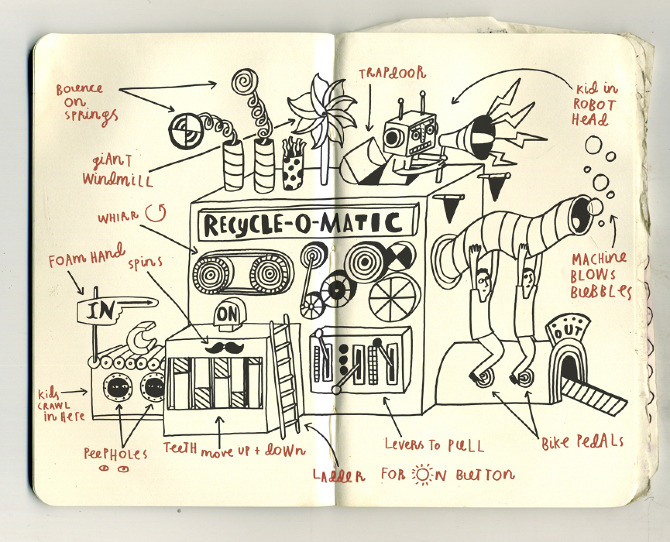 Bounce
on
springs
giant
windmill
whirr
foam hand
spins
IN
kids
crawl
in here
peepholes
teeth move up + down
ON
RECYCLE-O-MATIC
TRAPDOOR
kid in
ROBOT
Head
MACHINE
BLOWS
BUBBLES
OUT
Bike PedAls
LeverS to PULL
LAdder FOR ON BUTTON